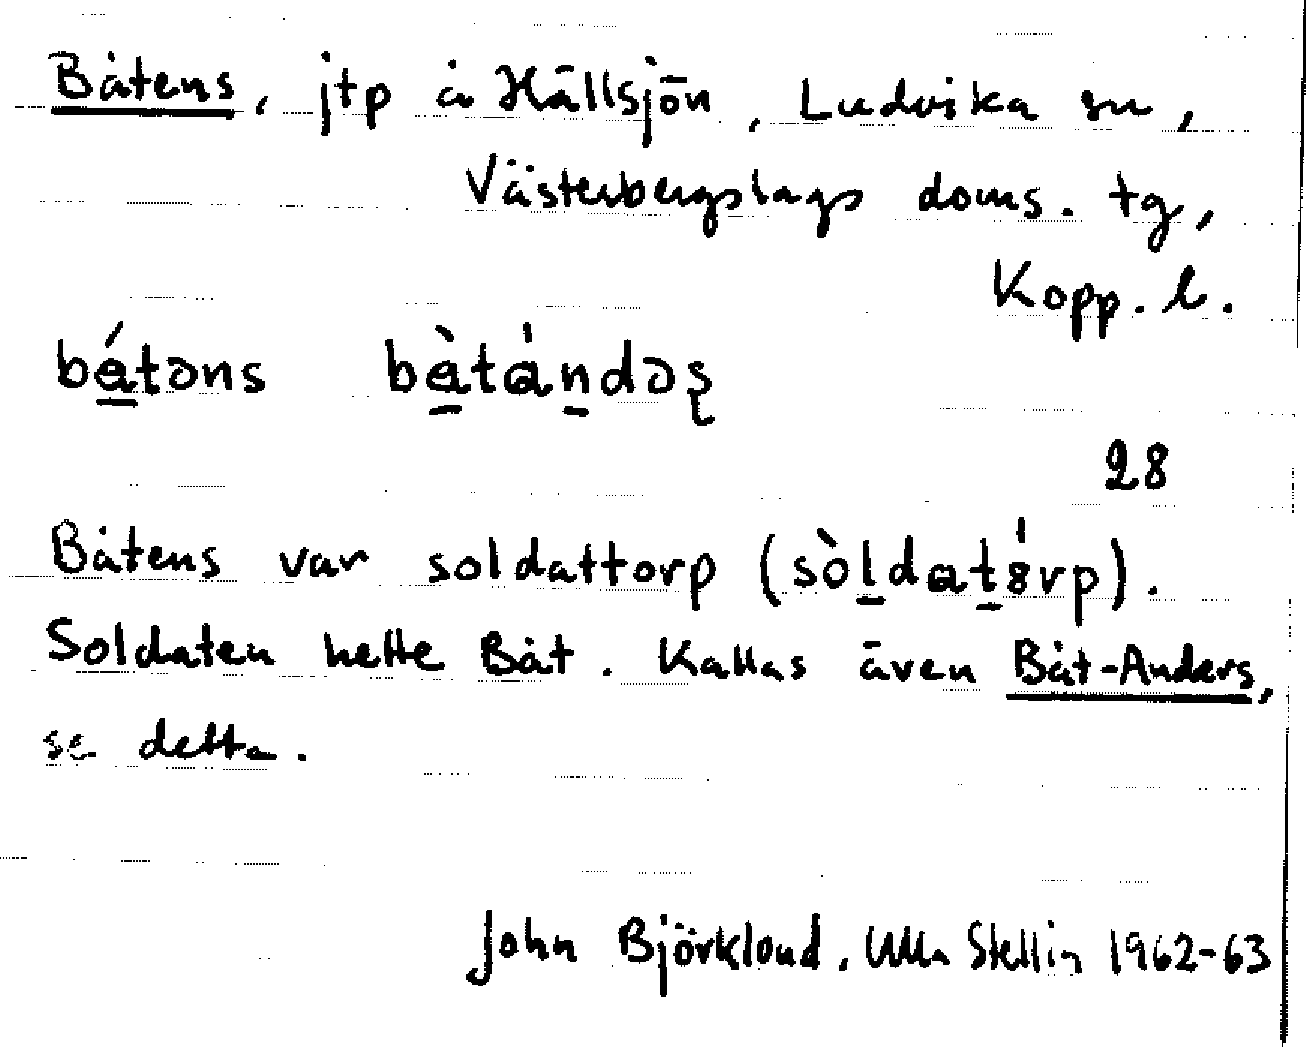 Båtens, jtp å Hällsjön, Ludvika sn,
Västerbergslags doms. tg,
Kopp. l.
bá̱təns bà̱táṉdəʂ
28
Båtens var soldattorp (sòḻdaṯórp).
Soldaten hette Båt. Kallas även Båt-Anders,
se detta.
John Björklund, Ulla Stellin 1962-63